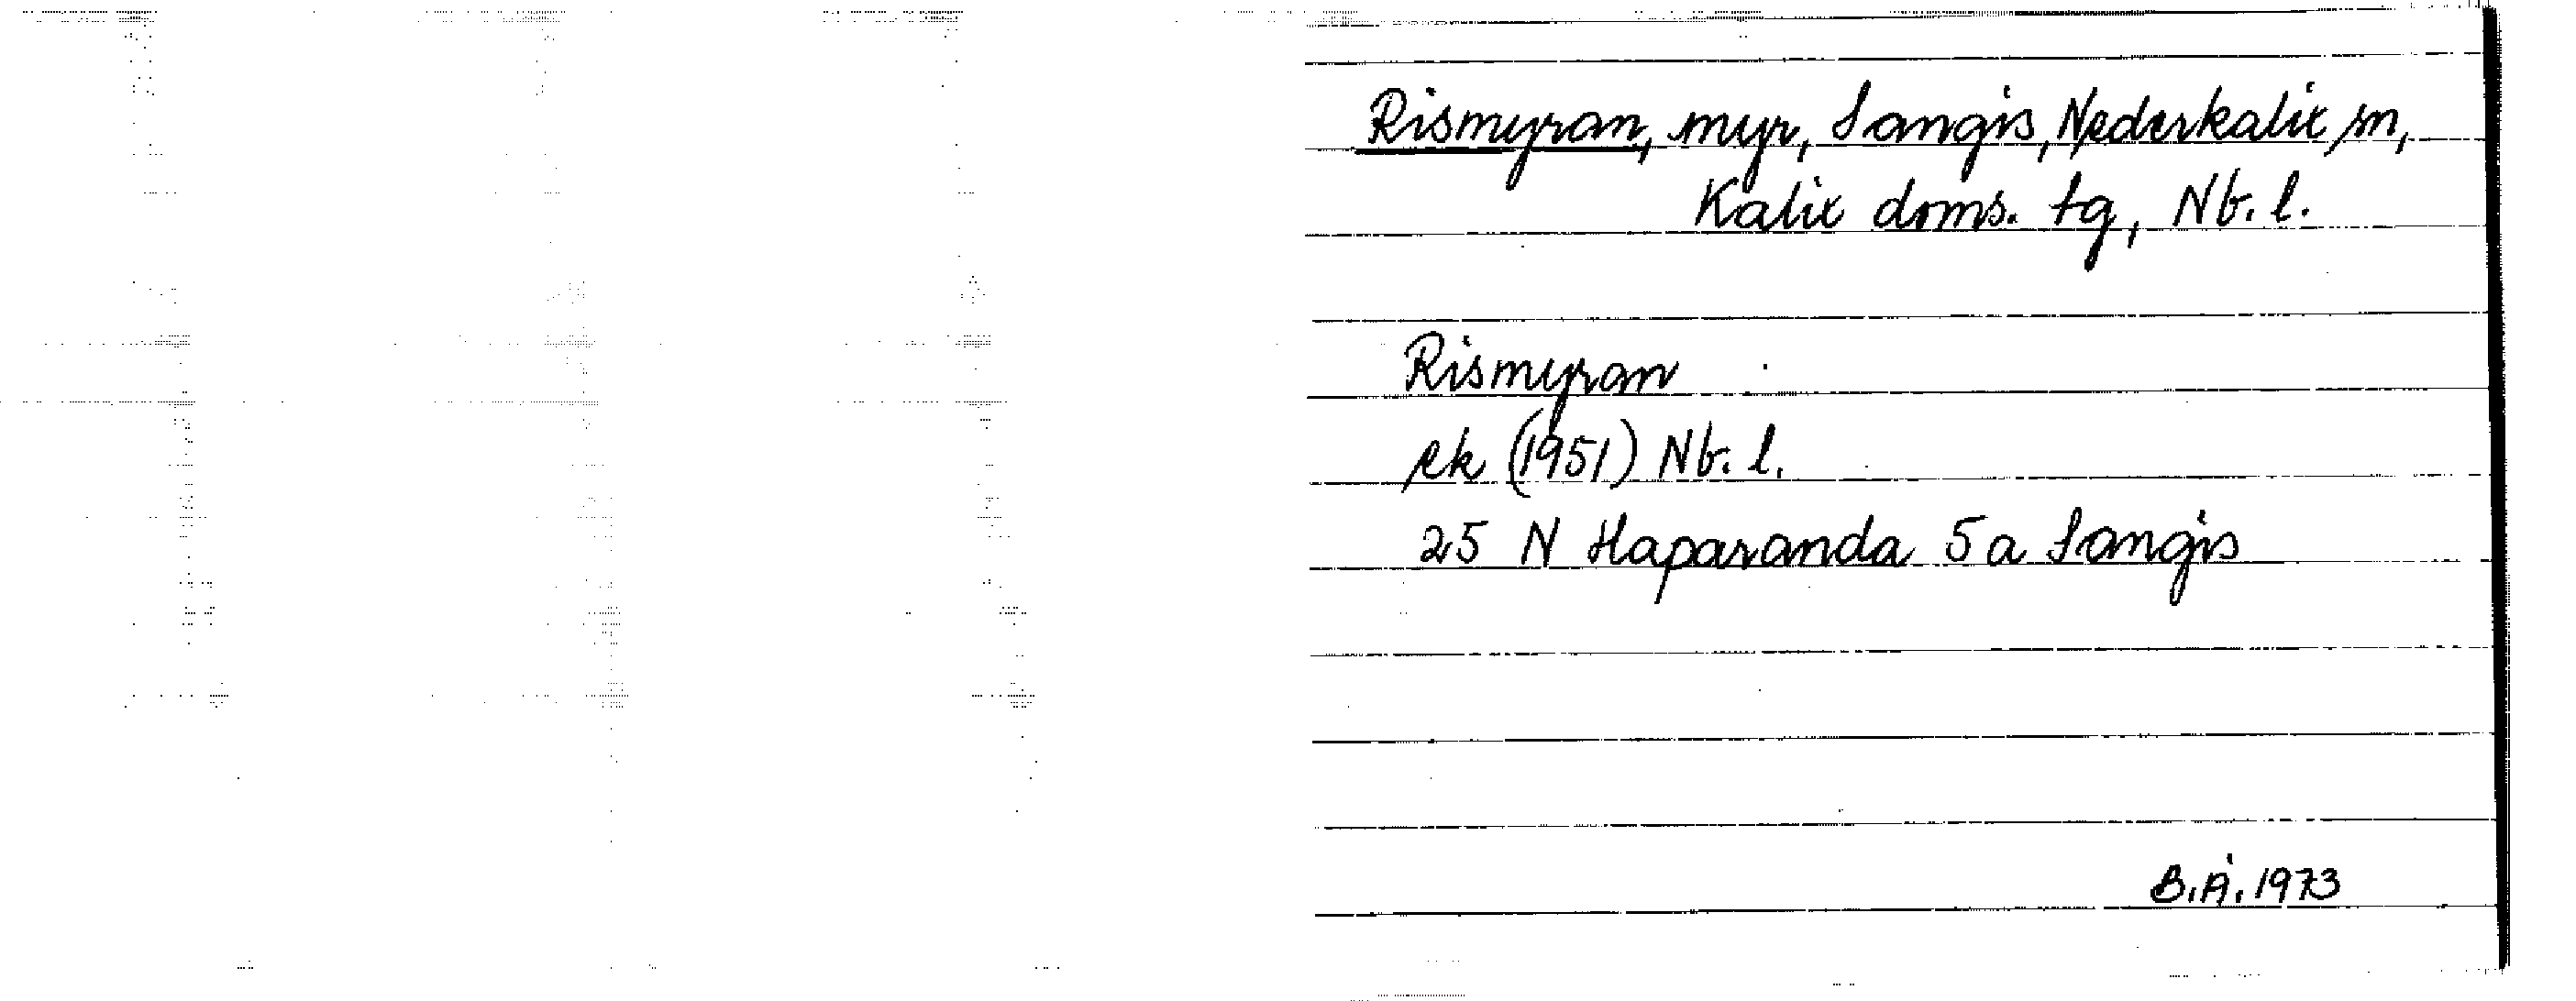 Rismyran, myr, Sangis, Nederkalix sn,
Kalix doms. tg, Nb. l.
Rismyran
ek (1951) Nb. l.
25 N Haparanda 5a Sangis
B.Å. 1973